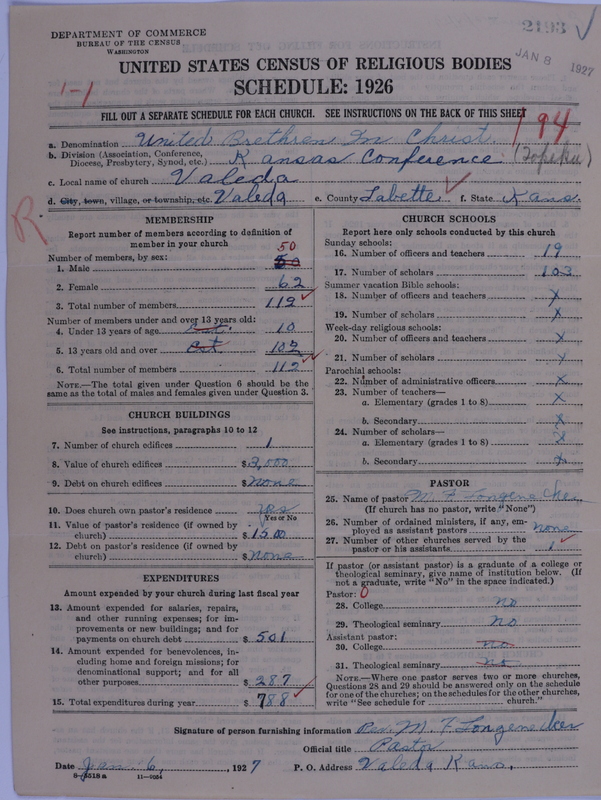 2193
DEPARTMENT OF COMMERCE
BUREAU OF THE CENSUS
WASHINGTON
JAN 8 1927
UNITED STATES CENSUS OF RELIGIOUS BODIES
SCHEDULE: 1926
1-1
FILL OUT A SEPARATE SCHEDULE FOR EACH CHURCH. SEE INSTRUCTIONS ON THE BACK OF THIS SHEET
194
a. Denomination United Brethren In Christ
b. Division (Association, Conference, Diocese, Presbytery, Synod, etc.) Kansas Conference (Topeka)
c. Local name of church Valeda
d. City, town, village, or township, etc. Valeda e. County Labette f. State Kans.
R
MEMBERSHIP
Report number of members according to definition of
member in your church
Number of members, by sex:
50
1. Male 50
2. Female 62
3. Total number of members 112
Number of members under and over 13 years old:
4. Under 13 years of age est. 10
5. 13 years old and over est 102
6. Total number of members 112
NOTE.—The total given under Question 6 should be the
same as the total of males and females given under Question 3.
CHURCH BUILDINGS
See instructions, paragraphs 10 to 12
7. Number of church edifices 1
8. Value of church edifices $ 3,000
9. Debt on church edifices $ None
10. Does church own pastor's residence yes
Yes or No
11. Value of pastor's residence (if owned by
church) $ 1500
12. Debt on pastor's residence (if owned by
church) $ None
EXPENDITURES
Amount expended by your church during last fiscal year
13. Amount expended for salaries, repairs,
and other running expenses; for im-
provements or new buildings; and for
payments on church debt $ 501
14. Amount expended for benevolences, in-
cluding home and foreign missions; for
denominational support; and for all
other purposes $ 287
15. Total expenditures during year $ 788
CHURCH SCHOOLS
Report here only schools conducted by this church
Sunday schools:
16. Number of officers and teachers 19
17. Number of scholars 103
Summer vacation Bible schools:
18. Number of officers and teachers x
19. Number of scholars x
Week-day religious schools:
20. Number of officers and teachers x
21. Number of scholars x
Parochial schools:
22. Number of administrative officers x
23. Number of teachers—
a. Elementary (grades 1 to 8) x
b. Secondary x
24. Number of scholars—
a. Elementary (grades 1 to 8) x
b. Secondary x
PASTOR
25. Name of pastor M. F. Longenecker
(If church has no pastor, write "None")
26. Number of ordained ministers, if any, em-
ployed as assistant pastors none
27. Number of other churches served by the
pastor or his assistants 1
If pastor (or assistant pastor) is a graduate of a college or
theological seminary, give name of institution below. (If
not a graduate, write "No" in the space indicated.)
Pastor: 0
28. College no
29. Theological seminary No
Assistant pastor:
30. College no
31. Theological seminary no
NOTE.—Where one pastor serves two or more churches,
Questions 28 and 29 should be answered only on the schedule
for one of the churches; on the schedules for the other churches,
write "See schedule for church."
Signature of person furnishing information Rev. M. F. Longenecker
Official title Pastor
Date Jan. 6, 1927 P. O. Address Valeda Kans.,
8-5518 a 11-9054